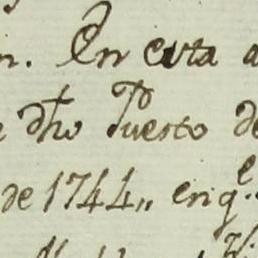 n. En esta a
dho Puerto de
de 1744,, en q.e